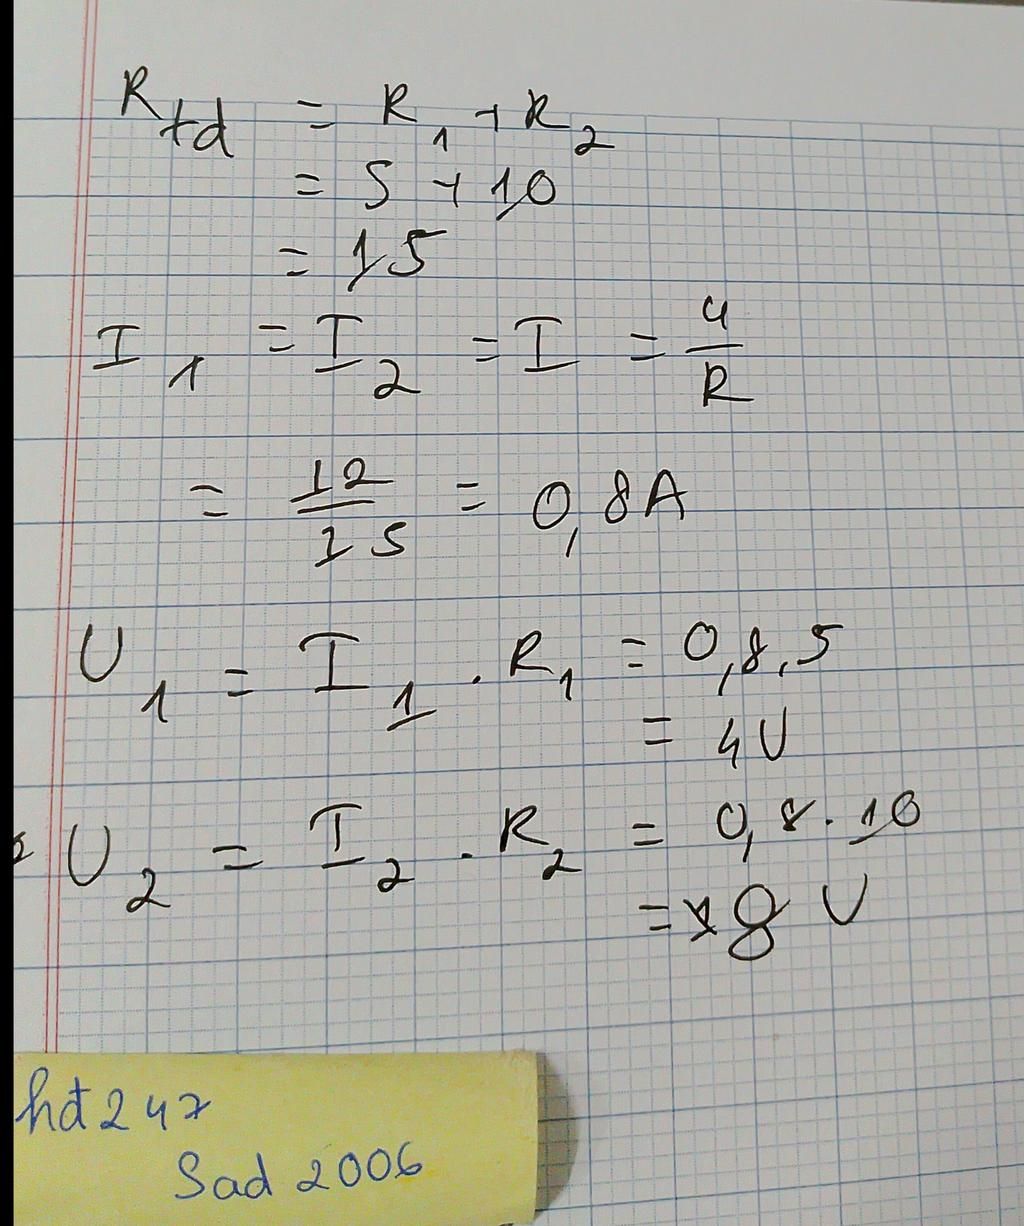 Rtđ = R1 + R2
= 5 + 10
= 15
I1 = I2 = I = U/R
= 12/15 = 0,8A
U1 = I1 . R1 = 0,8.5
= 4U
U2 = I2 . R2 = 0,8.10
= 8 V
hđ247
Sad 2006